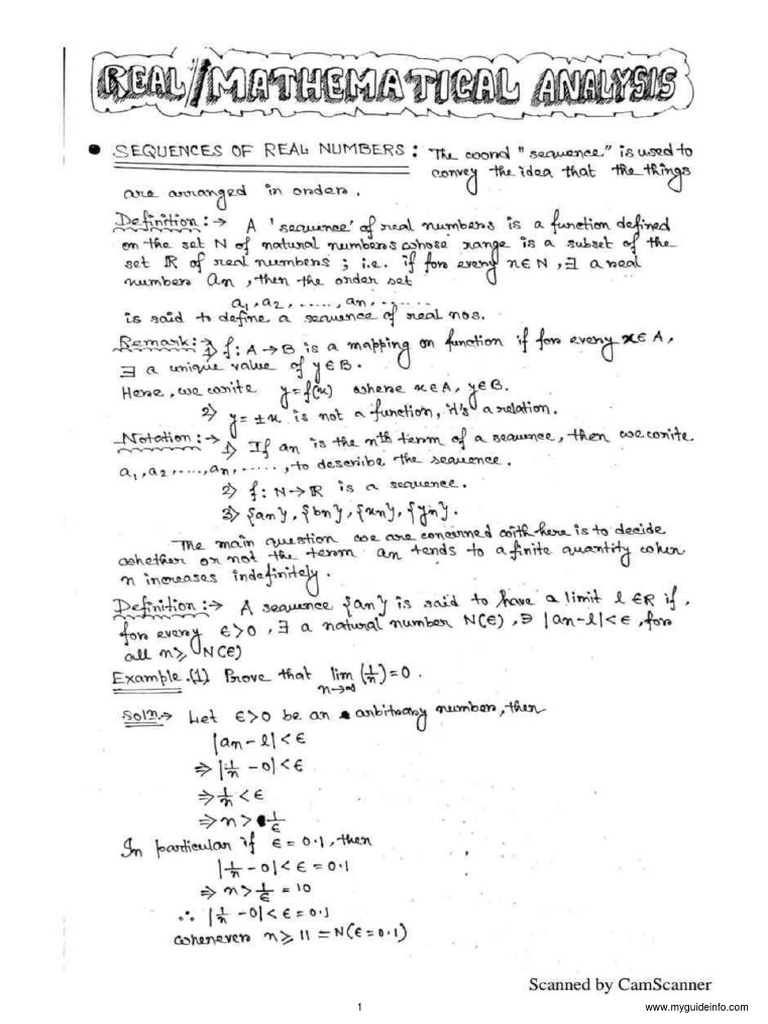 REAL/MATHEMATICAL ANALYSIS
• SEQUENCES OF REAL NUMBERS: The word "sequence" is used to
convey the idea that the things
are arranged in order.
Definition:→ A 'sequence' of real numbers is a function defined
on the set N of natural numbers whose range is a subset of the
set ℝ of real numbers; i.e. if for every n∈N, ∃ a real
number an, then the order set
a₁, a₂, ....., an, .......
is said to define a sequence of real nos.
Remark:→ 1) f: A→B is a mapping on function if for every x∈A,
∃ a unique value of y∈B.
Here, we write y=f(x) where x∈A, y∈B.
2) y=±x is not a function, it's a relation.
Notation:→ 1) If an is the nth term of a sequence, then we write
a₁, a₂, ...., an, ....., to describe the sequence.
2) f: N→ℝ is a sequence.
3) {an}, {bn}, {xn}, {yn}.
The main question we are concerned with here is to decide
whether or not the term an tends to a finite quantity when
n increases indefinitely.
Definition:→ A sequence {an} is said to have a limit l ∈R if,
for every ϵ>0, ∃ a natural number N(ϵ), ∋ |an-l|<ϵ, for
all n≥N(ϵ)
Example.(1) Prove that lim n→∞ (1/n)=0.
Soln.→ Let ϵ>0 be an arbitrary number, then
|an-l|<ϵ
⇒|1/n -0|<ϵ
⇒1/n<ϵ
⇒n>1/ϵ
In particular if ϵ=0.1, then
|1/n -0|<ϵ=0.1
⇒n>1/ϵ=10
∴ |1/n -0|<ϵ=0.1
whenever n≥11=N(ϵ=0.1)
Scanned by CamScanner
1
www.myguideinfo.com